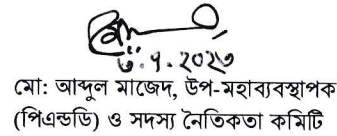 ৬.৭.২০২৩
মো: আব্দুল মাজেদ, উপ-মহাব্যবস্থাপক
(পিএন্ডডি) ও সদস্য নৈতিকতা কমিটি